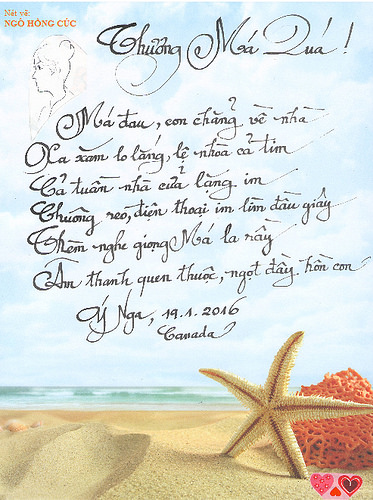 Nét vẽ:
NGÔ HỒNG CÚC
Thương Má Quá!
Má đau, con chẳng về nhà
Xa xăm lo lắng, lệ nhòa cả tim
Cả tuần nhà cửa lặng im
Chuông reo, điện thoại im lìm đầu giây
Thèm nghe giọng Má la rầy
Âm thanh quen thuộc, ngọt đầy hồn con
Ý Nga, 19.1.2016
Canada